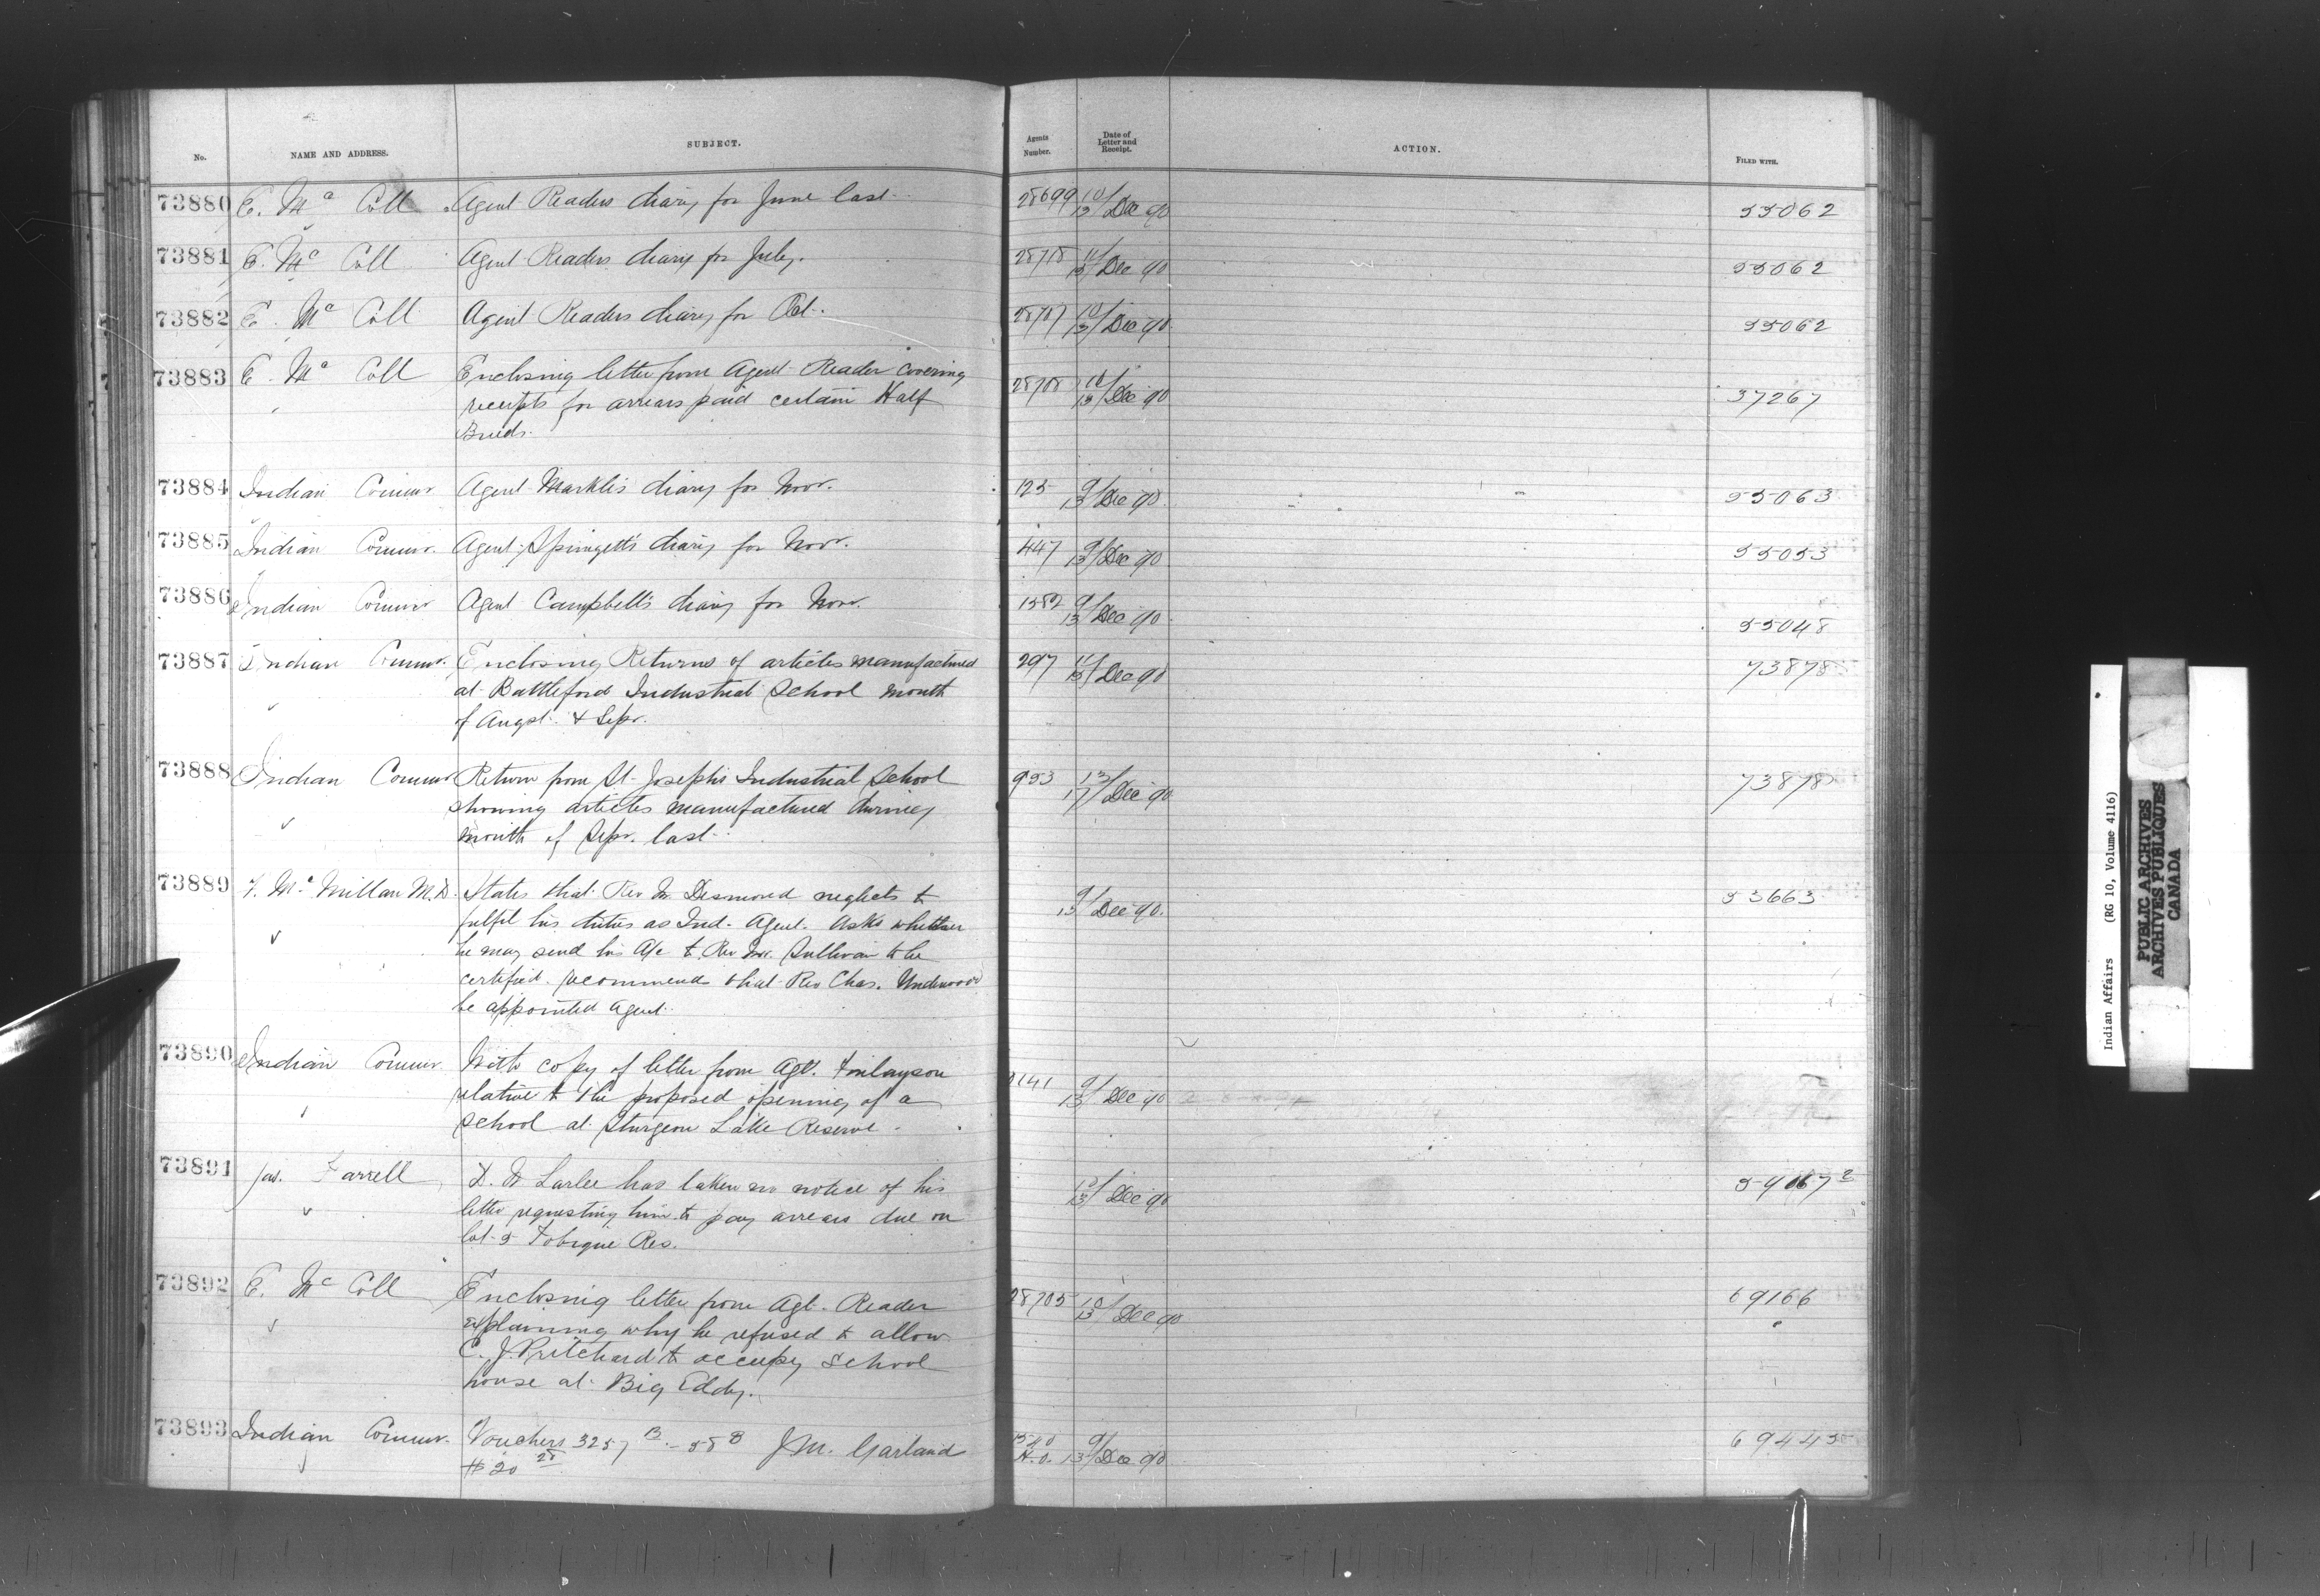 No. NAME AND ADDRESS. SUBJECT. Agents Number. Date of Letter and Receipt. ACTION. FILED WITH.
73880 E. Mc Coll Agent Readers diary for June last. 28699 10/13 Dec 90 55062
73881 E. Mc Coll Agent Readers diary for July. 28718 11/13 Dec 90 55062
73882 E. Mc Coll Agent Readers diary for Oct. 28707 10/13 Dec 90 55062
73883 E. Mc Coll Enclosing letter from Agent Reader covering 28708 10/13 Dec 90 37267
receipts for arrears paid certain Half
Breeds.
73884 Indian Commr Agent Markle's diary for Novr. 125 9/13 Dec 90 55063
73885 Indian Commr. Agent Spingett's diary for Novr. 447 9/13 Dec 90 55053
73886 Indian Commr Agent Campbell's diary for Novr. 1382 9/13 Dec 90 55048
73887 Indian Commr. Enclosing Returns of articles manufactured 297 11/13 Dec 90 73878
at Battleford Industrial School month
of Augst. & Sepr.
73888 Indian Commr Return from St. Joseph's Industrial School 953 13/17 Dec 90 73878
showing articles manufactured during
month of Sepr. last.
73889 Mc Millan M.D. States that Rev Mr Desmond neglects to 9/13 Dec 90. 53663
fulfil his duties as Ind. Agent. Asks whether
he may send his A/c to Rev Mr. Sullivan to be
certified. recommends that Rev Chas. Underwood
be appointed agent.
73890 Indian Commr With copy of letter from Agt. Finlayson
relative to the proposed opening of a 9/13 Dec 90
School at Sturgeon Lake Reserve.
73891 Jas. Farrell Larlee has taken no notice of his 12/13 Dec 90
letter requesting him to pay arrears due on
lot 5 Tobique Res.
73892 E. Mc Coll Enclosing letter from Agt. Reader 28705 10/13 Dec 90 69166
explaining why he refused to allow
C. J. Pritchard to occupy School
house at Big Eddy.
73893 Indian Commr. Vouchers 3257 J.M. Garland H.O. 9/13 Dec 90 69445
$20
Indian Affairs (RG 10, Volume 4116)
PUBLIC ARCHIVES
ARCHIVES PUBLIQUES
CANADA